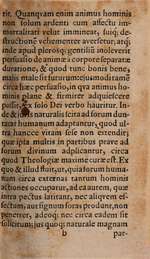 rit. Quanquam enim animus hominis
non solum ardenti cum affectu im-
mortalitati velut imminent, suiq; de-
structione vehementer avertetur, atq;
inde apud plerosq; gentiliũ inoleverit
persuasio de animæ à corpore separatæ
duratione, & quod tunc bonis bene,
malis male sit futurum: ejusmodi tamẽ
circa hæc persuasio, in qua animus ho-
minis plane & firmiter adquiescere
possit, ex solo Dei verbo hauritur. In-
de & Jus naturale ita ad forum dun-
taxat humanum adaptantur, quod ul-
tra hancce vitam sese non extendit;
quæ ipta multis in partibus prave ad
forum divinum adplicantur, circa
quod Theologiæ maxime curæ est. Ex
quo & illud fluit, ut, quia forum huma-
num circa externas tantum hominis
actiones occupatur, ad ea autem, quæ
intra pectus latitant, nec aliquem ef-
fectum, aut signum foras produnt, non
penetret, adeoq; nec circa eadem sit
solicitum; jus quoq; naturale magnam
b par-